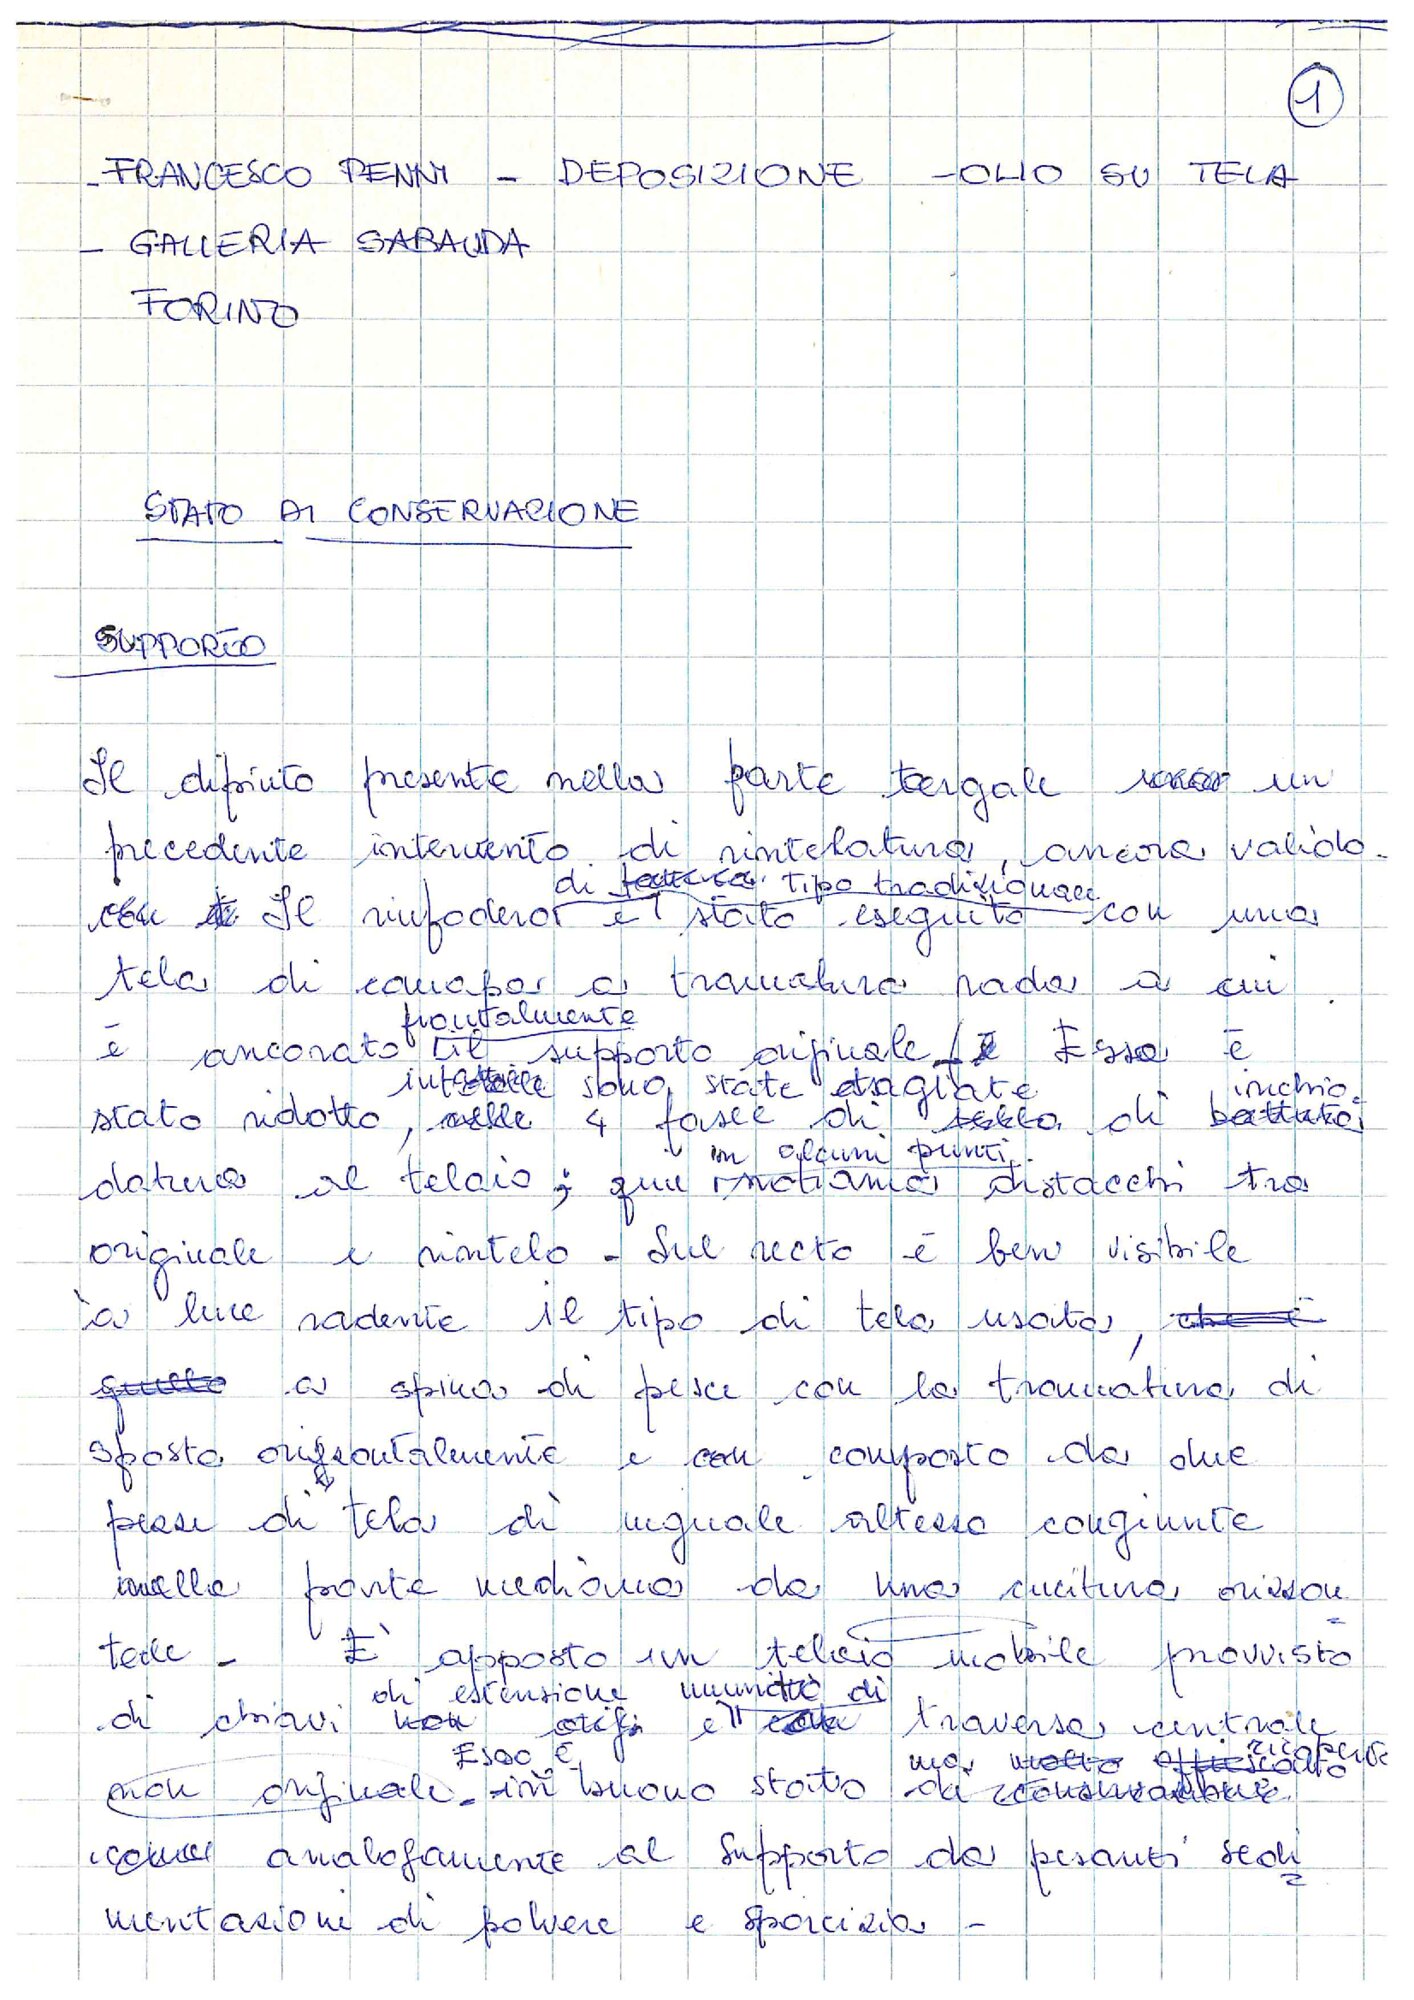 1
- FRANCESCO PENNI - DEPOSIZIONE - OLIO SU TELA
- GALLERIA SABAUDA
TORINO
STATO DI CONSERVAZIONE
SUPPORTO
Il dipinto presenta nella parte tergale un
precedente intervento di rintelatura, ancora valido.
di tipo tradizionale
Il rinfodero è stato eseguito con una
tela di canapa a tramatura rada a cui
frontalmente
è ancorato il supporto originale. Esso è
infatti sono state tagliate inchio
stato ridotto, 4 fasce di di battuta
in alcuni punti
datura al telaio; qui notiamo distacchi tra
originale e rintelo - Sul recto è ben visibile
a luce radente il tipo di tela usata, che è
quello a spina di pesce con la tramatura di
sposta orizzontalmente e con composto da due
pezze di tela di uguale altezza congiunte
nella parte mediana da una cucitura orizzon
tale - È apposto un telaio mobile provvisto
di estensione munito di
di chiavi non e traversa centrale
Esso è ma molto ricoperto
non originale - in buono stato di conservazione
come analogamente al supporto da pesanti sedi
mentazioni di polvere e sporcizia -